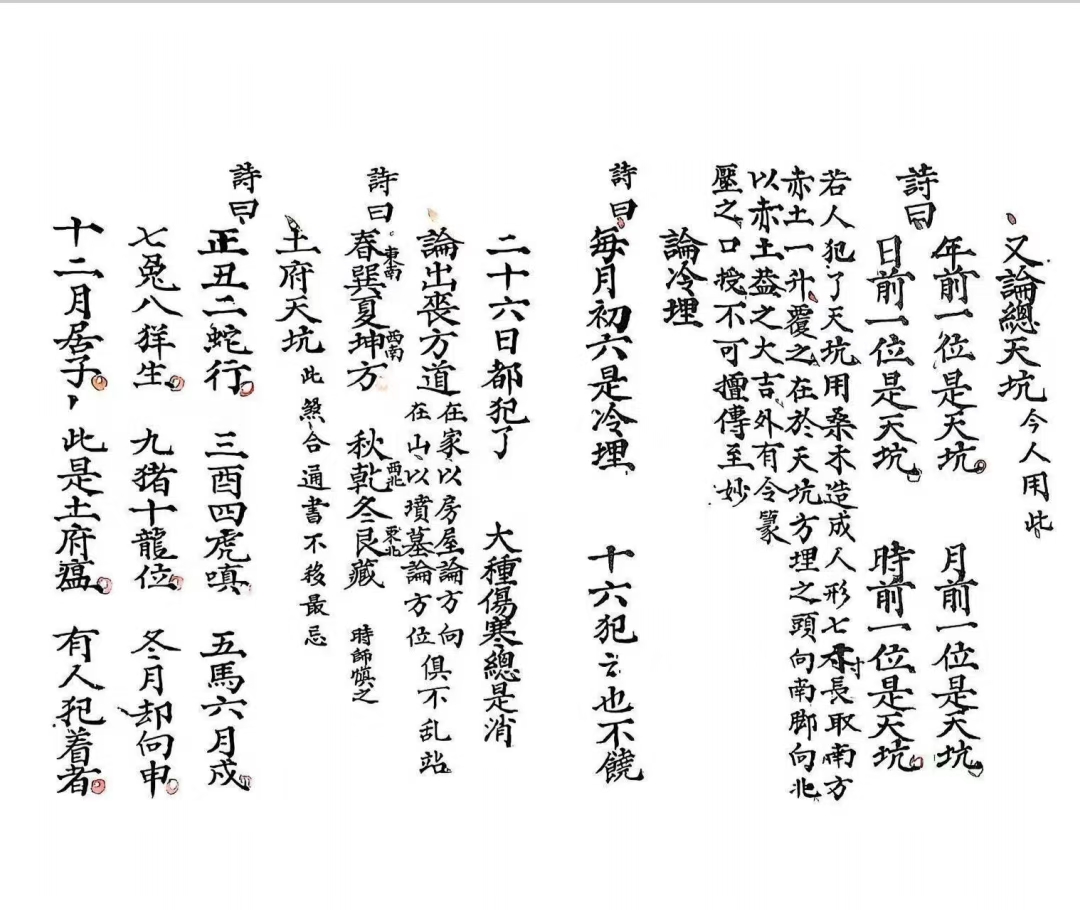 又論總天坑今人用此
詩曰
年前一位是天坑 月前一位是天坑
日前一位是天坑 時前一位是天坑
若人犯了天坑用桑木造成人形七寸長取南方
赤土一升覆之在於天坑方埋之頭向南脚向北
以赤土盖之大吉外有令篆
壓之口授不可擅傳至妙
論冷埋
詩曰
每月初六是冷埋 十六犯言也不饒
二十六日都犯了 大種傷寒總是消
論出喪方道 在家以房屋論方向
在山以墳墓論方位 俱不乱站
詩曰
春巽東南夏坤西南方 秋乾西北冬艮東北藏 時師慎之
土府天坑 此煞合通書不移最忌
詩曰
正丑二蛇行 三酉四虎嗔 五馬六月戍
七兔八羊生 九猪十龍位 冬月却向申
十二月居子 此是土府瘟 有人犯着者